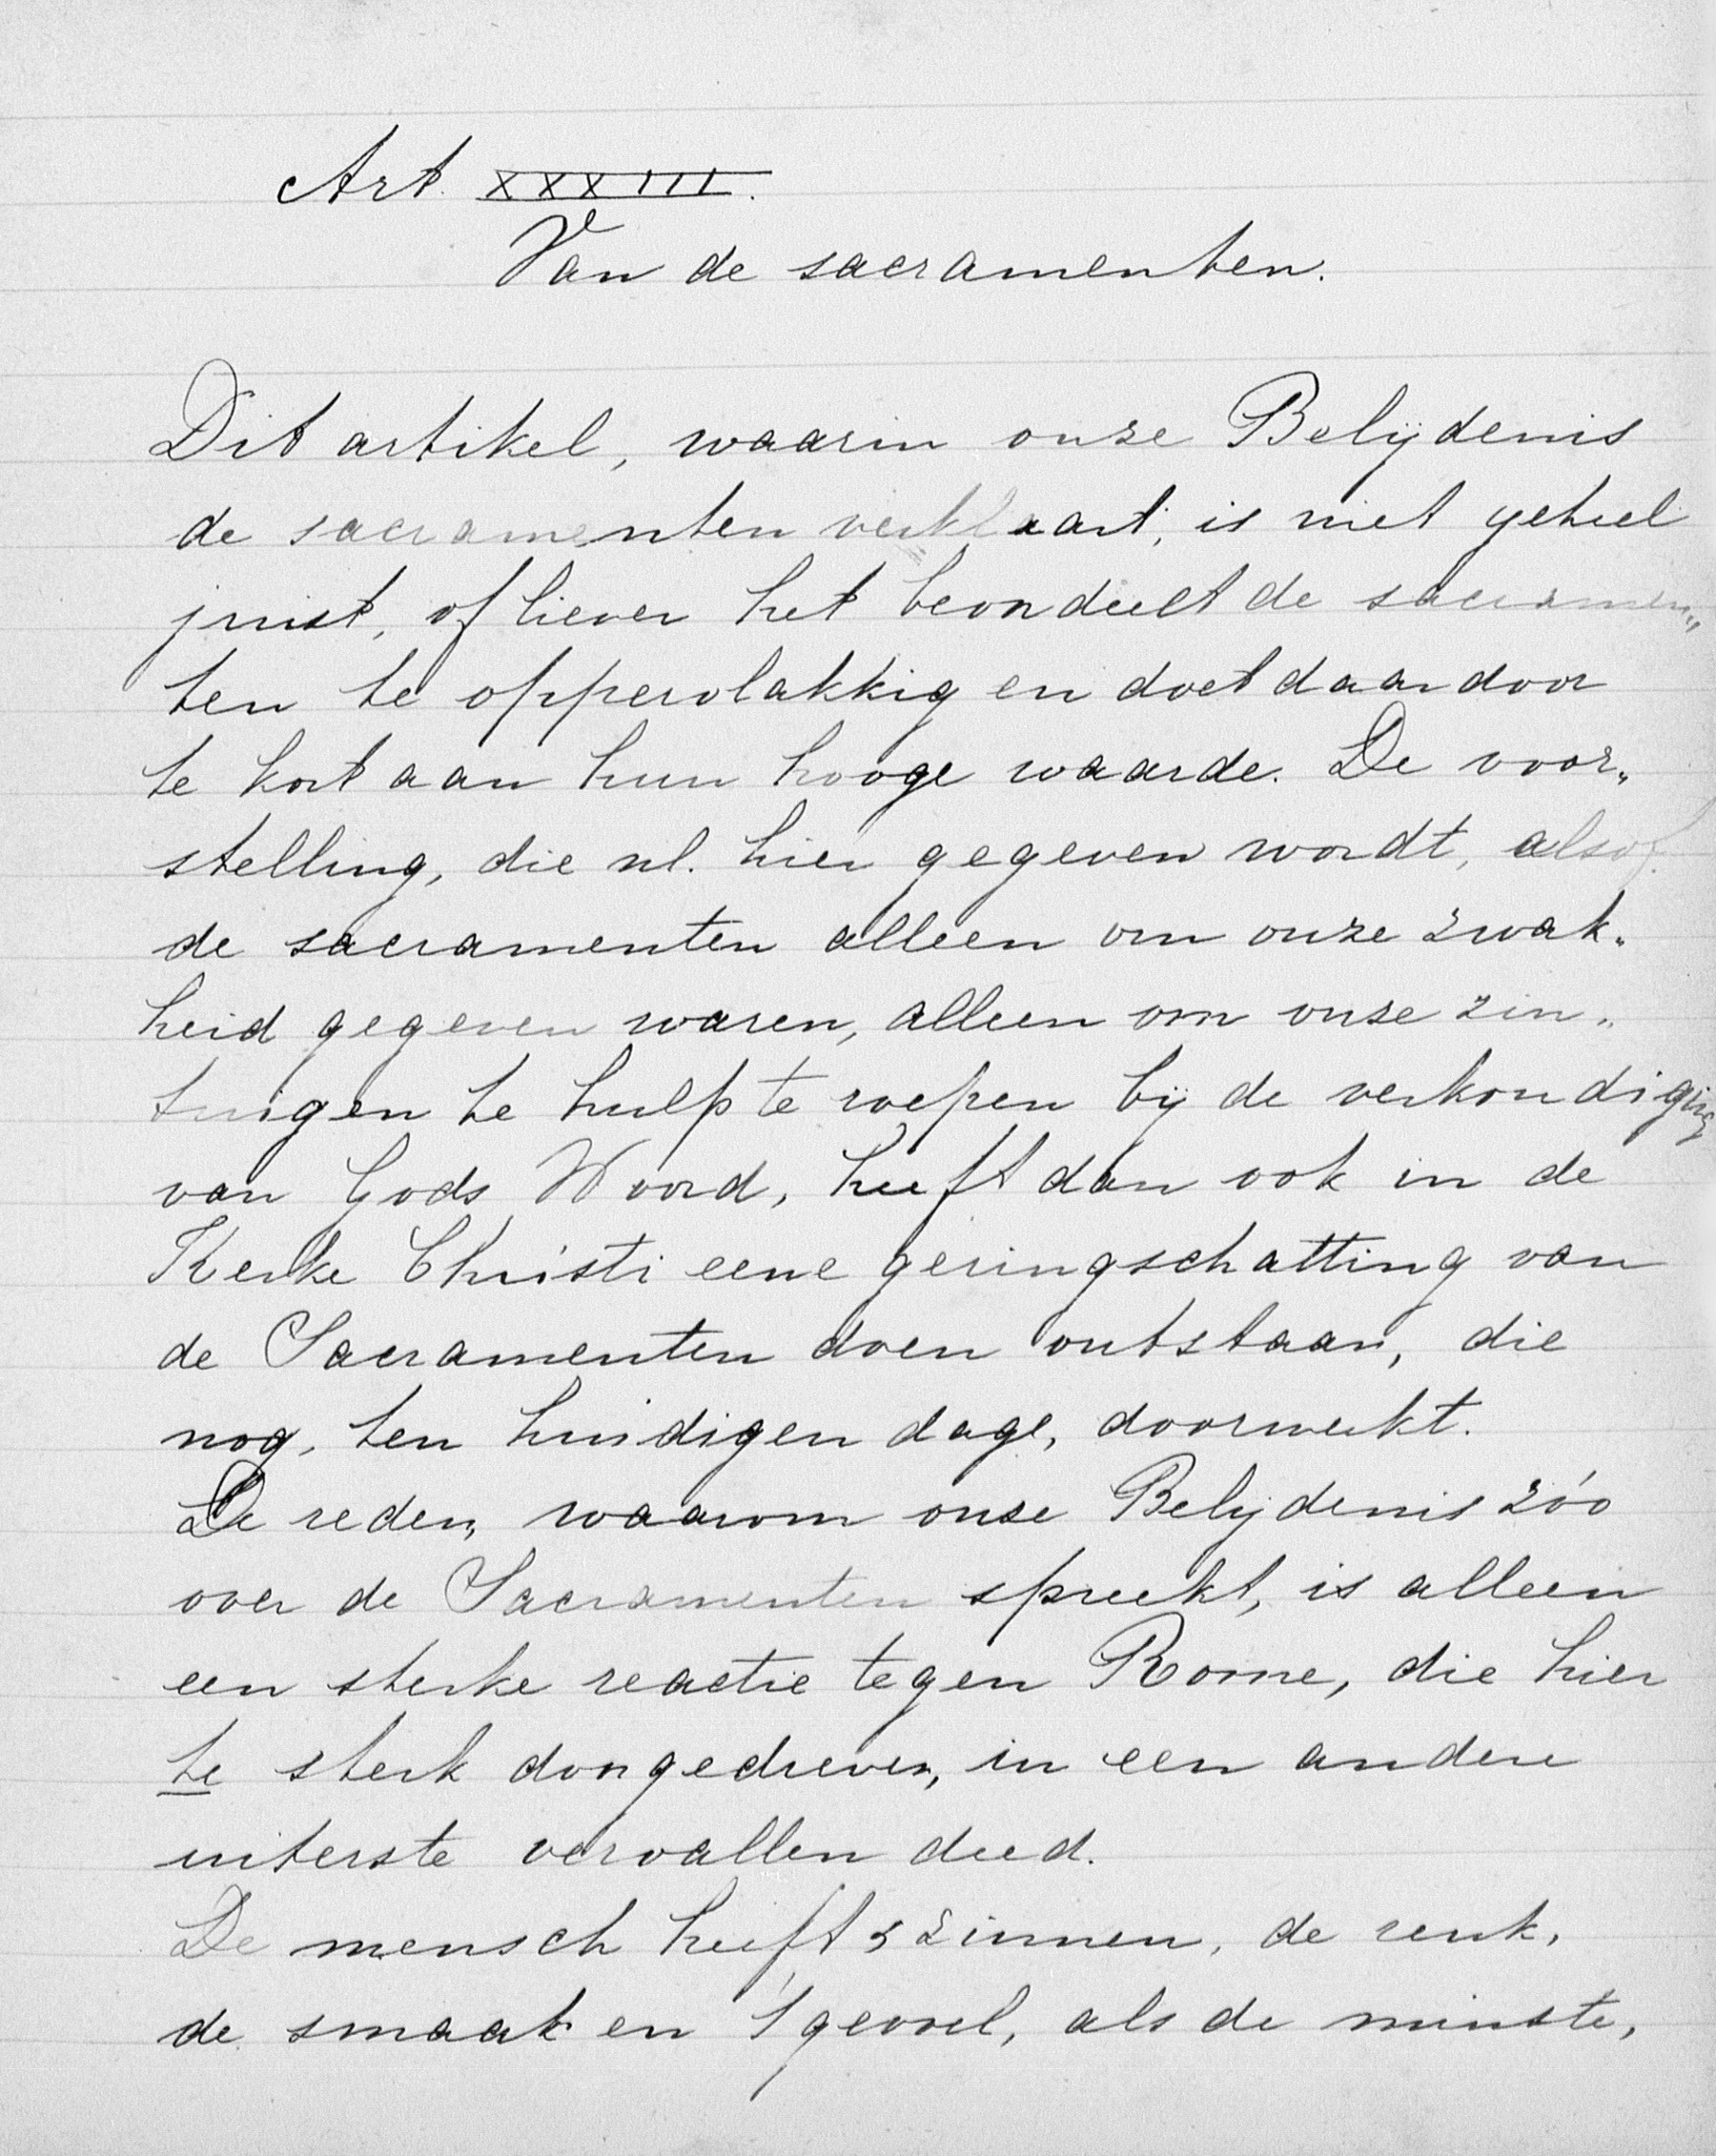 Art. XXXIII.
Van de sacramenten.
Dit artikel, waarin onze Belijdenis
de sacramenten verklaart, is niet geheel
juist, of liever het beoordeelt de sacramen„
ten te oppervlakkig en doet daardoor
te kort aan hun hooge waarde. De voor„
stelling, die nl. hier gegeven wordt, alsof
de sacramenten alleen om onze zwak„
heid gegeven waren, alleen om onze zin„
tuigen te hulp te roepen bij de verkondiging
van Gods Woord, heeft dan ook in de
Kerke Christi eene geringschatting van
de Sacramenten doen ontstaan, die
nog, ten huidigen dage, doorwerkt.
De reden, waarom onze Belijdenis zóo
over de Sacramenten spreekt, is alleen
een sterke reactie tegen Rome, die hier
te sterk doorgedreven, in een andere
uiterste vervallen deed.
De mensch heeft 5 zinnen, de reuk,
de smaak en 't gevoel, als de minste,